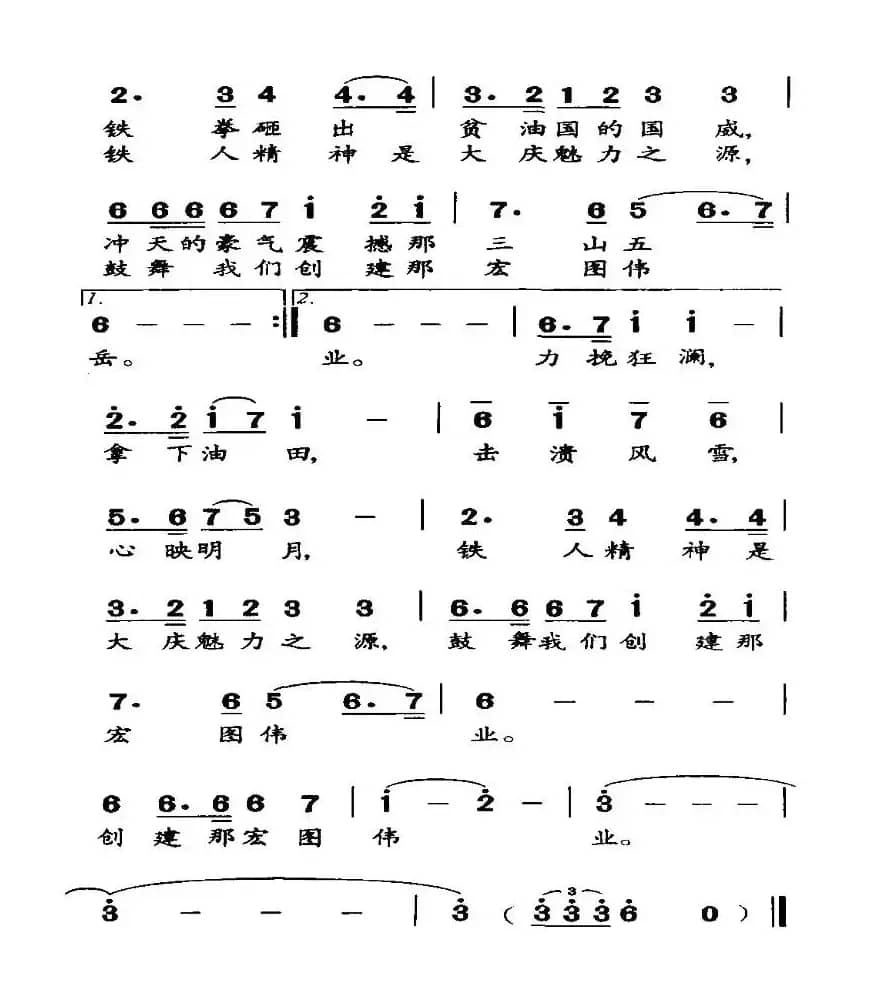 2. 3 4 4. 4 | 3. 2 1 2 3 3 |
铁 拳砸出 贫油国的国威,
铁 人精神是大庆魅力之源,
6 6 6 6 7 i 2 i | 7. 6 5 6. 7 |
冲天的豪气震撼那三山五
鼓舞我们创建那宏图伟
1. 2.
6 — — — :‖ 6 — — — | 6. 7 i i — |
岳。 业。 力挽狂澜,
2. 2 i 7 i — | 6 i 7 6
拿下油田, 击溃风雪,
5. 6 7 5 3 — | 2. 3 4 4. 4 |
心映明月, 铁人精神是
3. 2 1 2 3 3 | 6. 6 6 7 i 2 i |
大庆魅力之源, 鼓舞我们创建那
7. 6 5 6. 7 | 6 — — — |
宏图伟业。
6 6. 6 6 7 | i — 2 — | 3 — — — |
创建那宏图伟业。
3
3 — — — | 3 ( 3 3 3 6 0 ) ‖